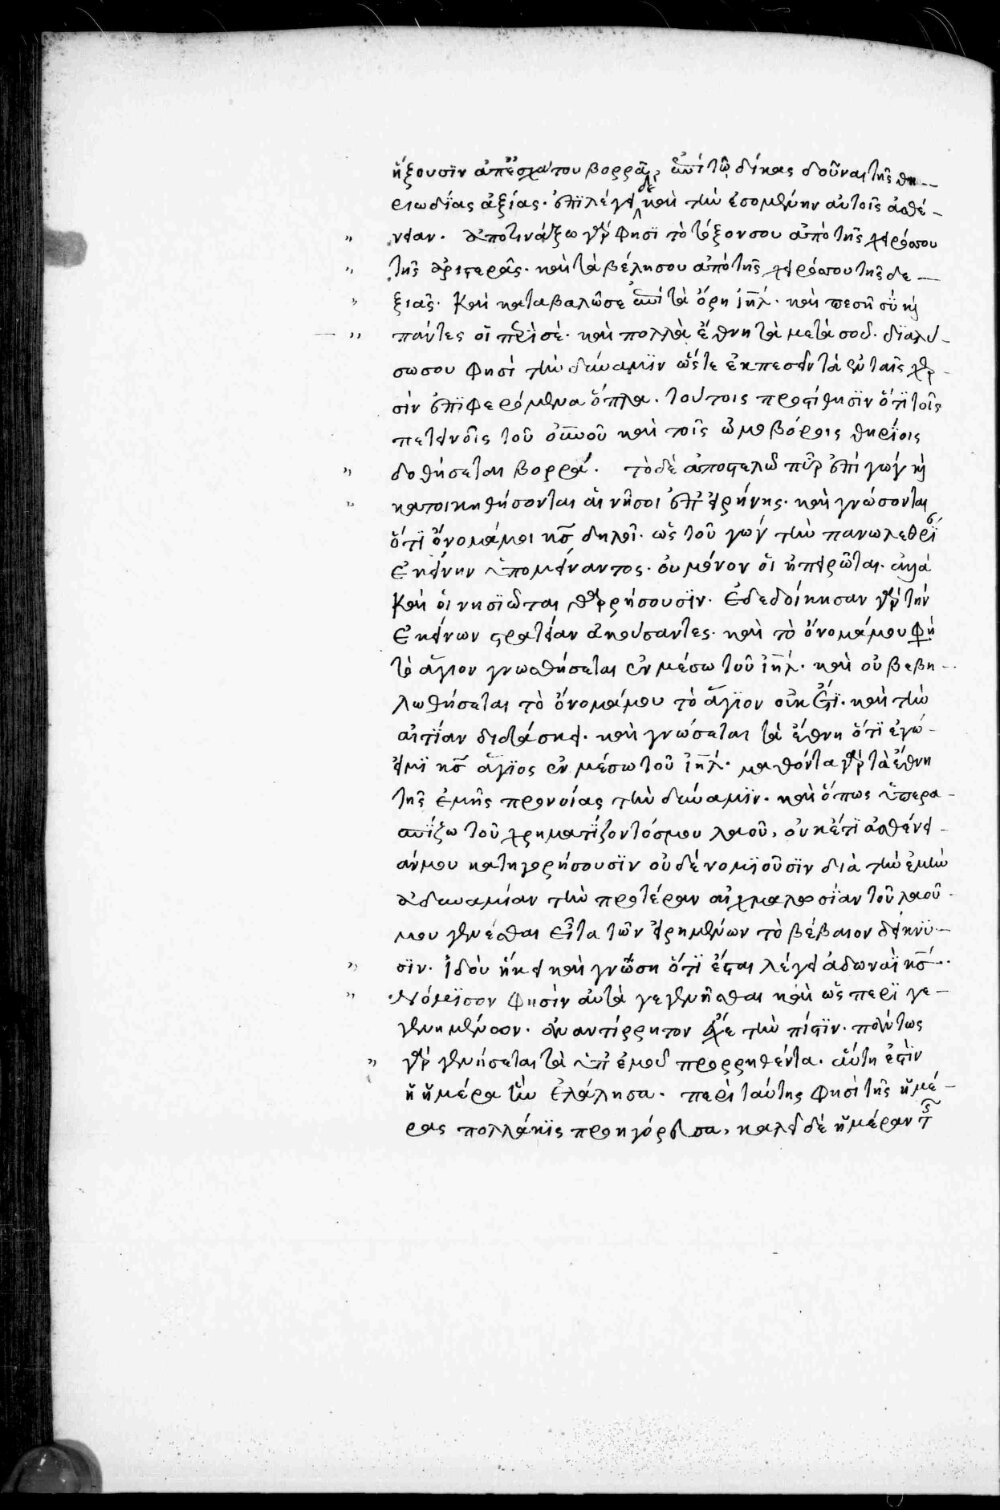 ἥξουσϊν ἀπἐσχάτου βορρᾶ, ἐπὶ τῶ δίκας δοῦναι τῆς θη-
ριωδίας ἀξίας. ἐπϊλέγει δὲ καὶ τὴν ἐσομένην αὐτοῖς ἀσθέ-
νειαν. ἀποτινάξω γὰρ φησϊ τὸ τόξον σου ἀπὸ τῆς χειρόσου
τῆς ἀριστερᾶς. καὶ τὰ βέλησου ἀπὸ τῆς χειρόσου τῆς δε-
ξιᾶς. Καὶ καταβαλῶσε ἐπὶ τὰ ὄρη ἰηλ. καὶ πεσῆ σὺ καὶ
πάντες οἱ περὶ σέ. καὶ πολλὰ ἔθνη τὰ μετὰ σοῦ. διαλύ-
σωσου φησὶ τὴν δύναμϊν ὥστε ἐκπεσεῖν τὰ ἐν ταῖς χερ-
σὶν ἐπϊφερόμενα ὅπλα. τούτοις προστίθησϊν ὅτϊ τοῖς
πετεινοῖς τοῦ οὐνοῦ καὶ τοῖς ὠμοβόροις θηρίοις
δοθήσεται βορρά. τὸ δὲ ἀποστελῶ πῦρ ἐπὶ γώγ καὶ
κατοικηθήσονται αἱ νῆσοι ἐπ εἰρήνης. καὶ γνώσονται
ὅτϊ ὄνομάμοι κς δηλοῖ. ὡς τοῦ γώγ τὴν πανωλεθρϊ
ἐκείνην ὑπομείναντος. οὐ μόνον οἱ ἠπειρῶται. ἀλλὰ
Καὶ οἱ νησϊῶται θαρρήσουσϊν. Ἐδεδοίκησαν γὰρ τὴν
ἐκείνων στρατείαν ἀκούσαντες. καὶ τὸ ὄνομάμου φη
τὸ ἅγιον γνωσθήσεται ἐν μέσω τοῦ ἰηλ. καὶ οὐ βεβη-
λωθήσεται τὸ ὄνομάμου τὸ ἅγϊον οὐκ ἔτϊ. καὶ τὴν
αἰτίαν διδάσκει. καὶ γνώσεται τὰ ἔθνη ὅτϊ ἐγώ
εἰμϊ κς ἅγϊος ἐν μέσω τοῦ ἰηλ. μαθόντα γὰρ τὰ ἔθνη
τῆς ἐμῆς προνοίας τὴν δύναμϊν. καὶ ὅπως ὑπερα-
σπίζω τοῦ χρηματίζοντόσμου λαοῦ, οὐκέτϊ ἀσθένει-
άνμου κατηγορήσουσϊν οὐδέ νομϊοῦσϊν διὰ τὴν ἐμὴν
ἀδυναμίαν τὴν προτέραν αἰχμαλωσίαν τοῦ λαοῦ
μου γενέσθαι Εἶτα τῶν εἰρημένων τὸ βέβαιον δεικνϋ-
σϊν. Ἰδοὺ ἥκει καὶ γνώση ὅτϊ ἔσται λέγει ἀδωναῒ κς.
Νόμϊσον φησὶν αὐτὰ γεγενῆσθαι καὶ ὥς περϊ γε-
γενημένων. ἀναντίρρητον ἔχε τὴν πίστϊν. πάντως
γὰρ γενήσεται τὰ ὑπ ἐμοῦ προρρηθέντα. αὕτη ἐστὶν
ἡ ἡμέρα ἣν ἐλάλησα. περὶ ταύτης φησὶ τῆς ἡμέ-
ρας πολλάκϊς προηγόρευσα, καλεῖ δὲ ἡμέραν